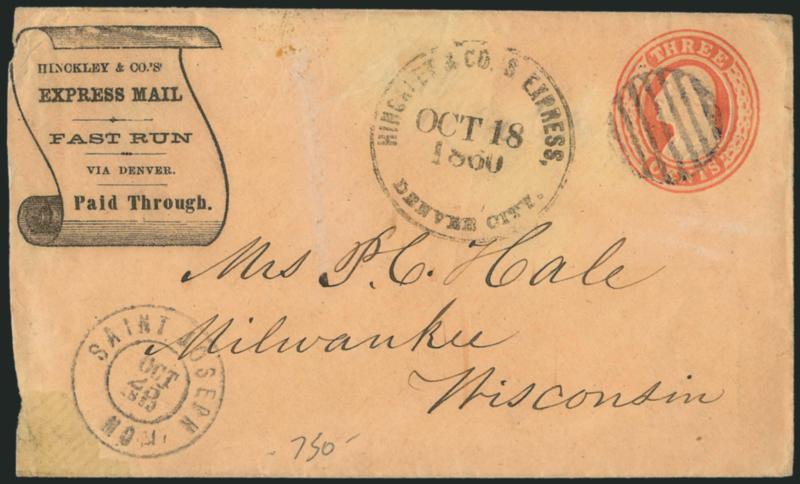 HINCKLEY & CO.'S'
EXPRESS MAIL
FAST RUN
VIA DENVER.
Paid Through.
HINCKLEY & CO.'S EXPRESS,
OCT 18
1860
DENVER CITY.
THREE
CENTS
Mrs P. C. Hale
Milwaukee
Wisconsin
SAINT JOSEPH
OCT
MO
750